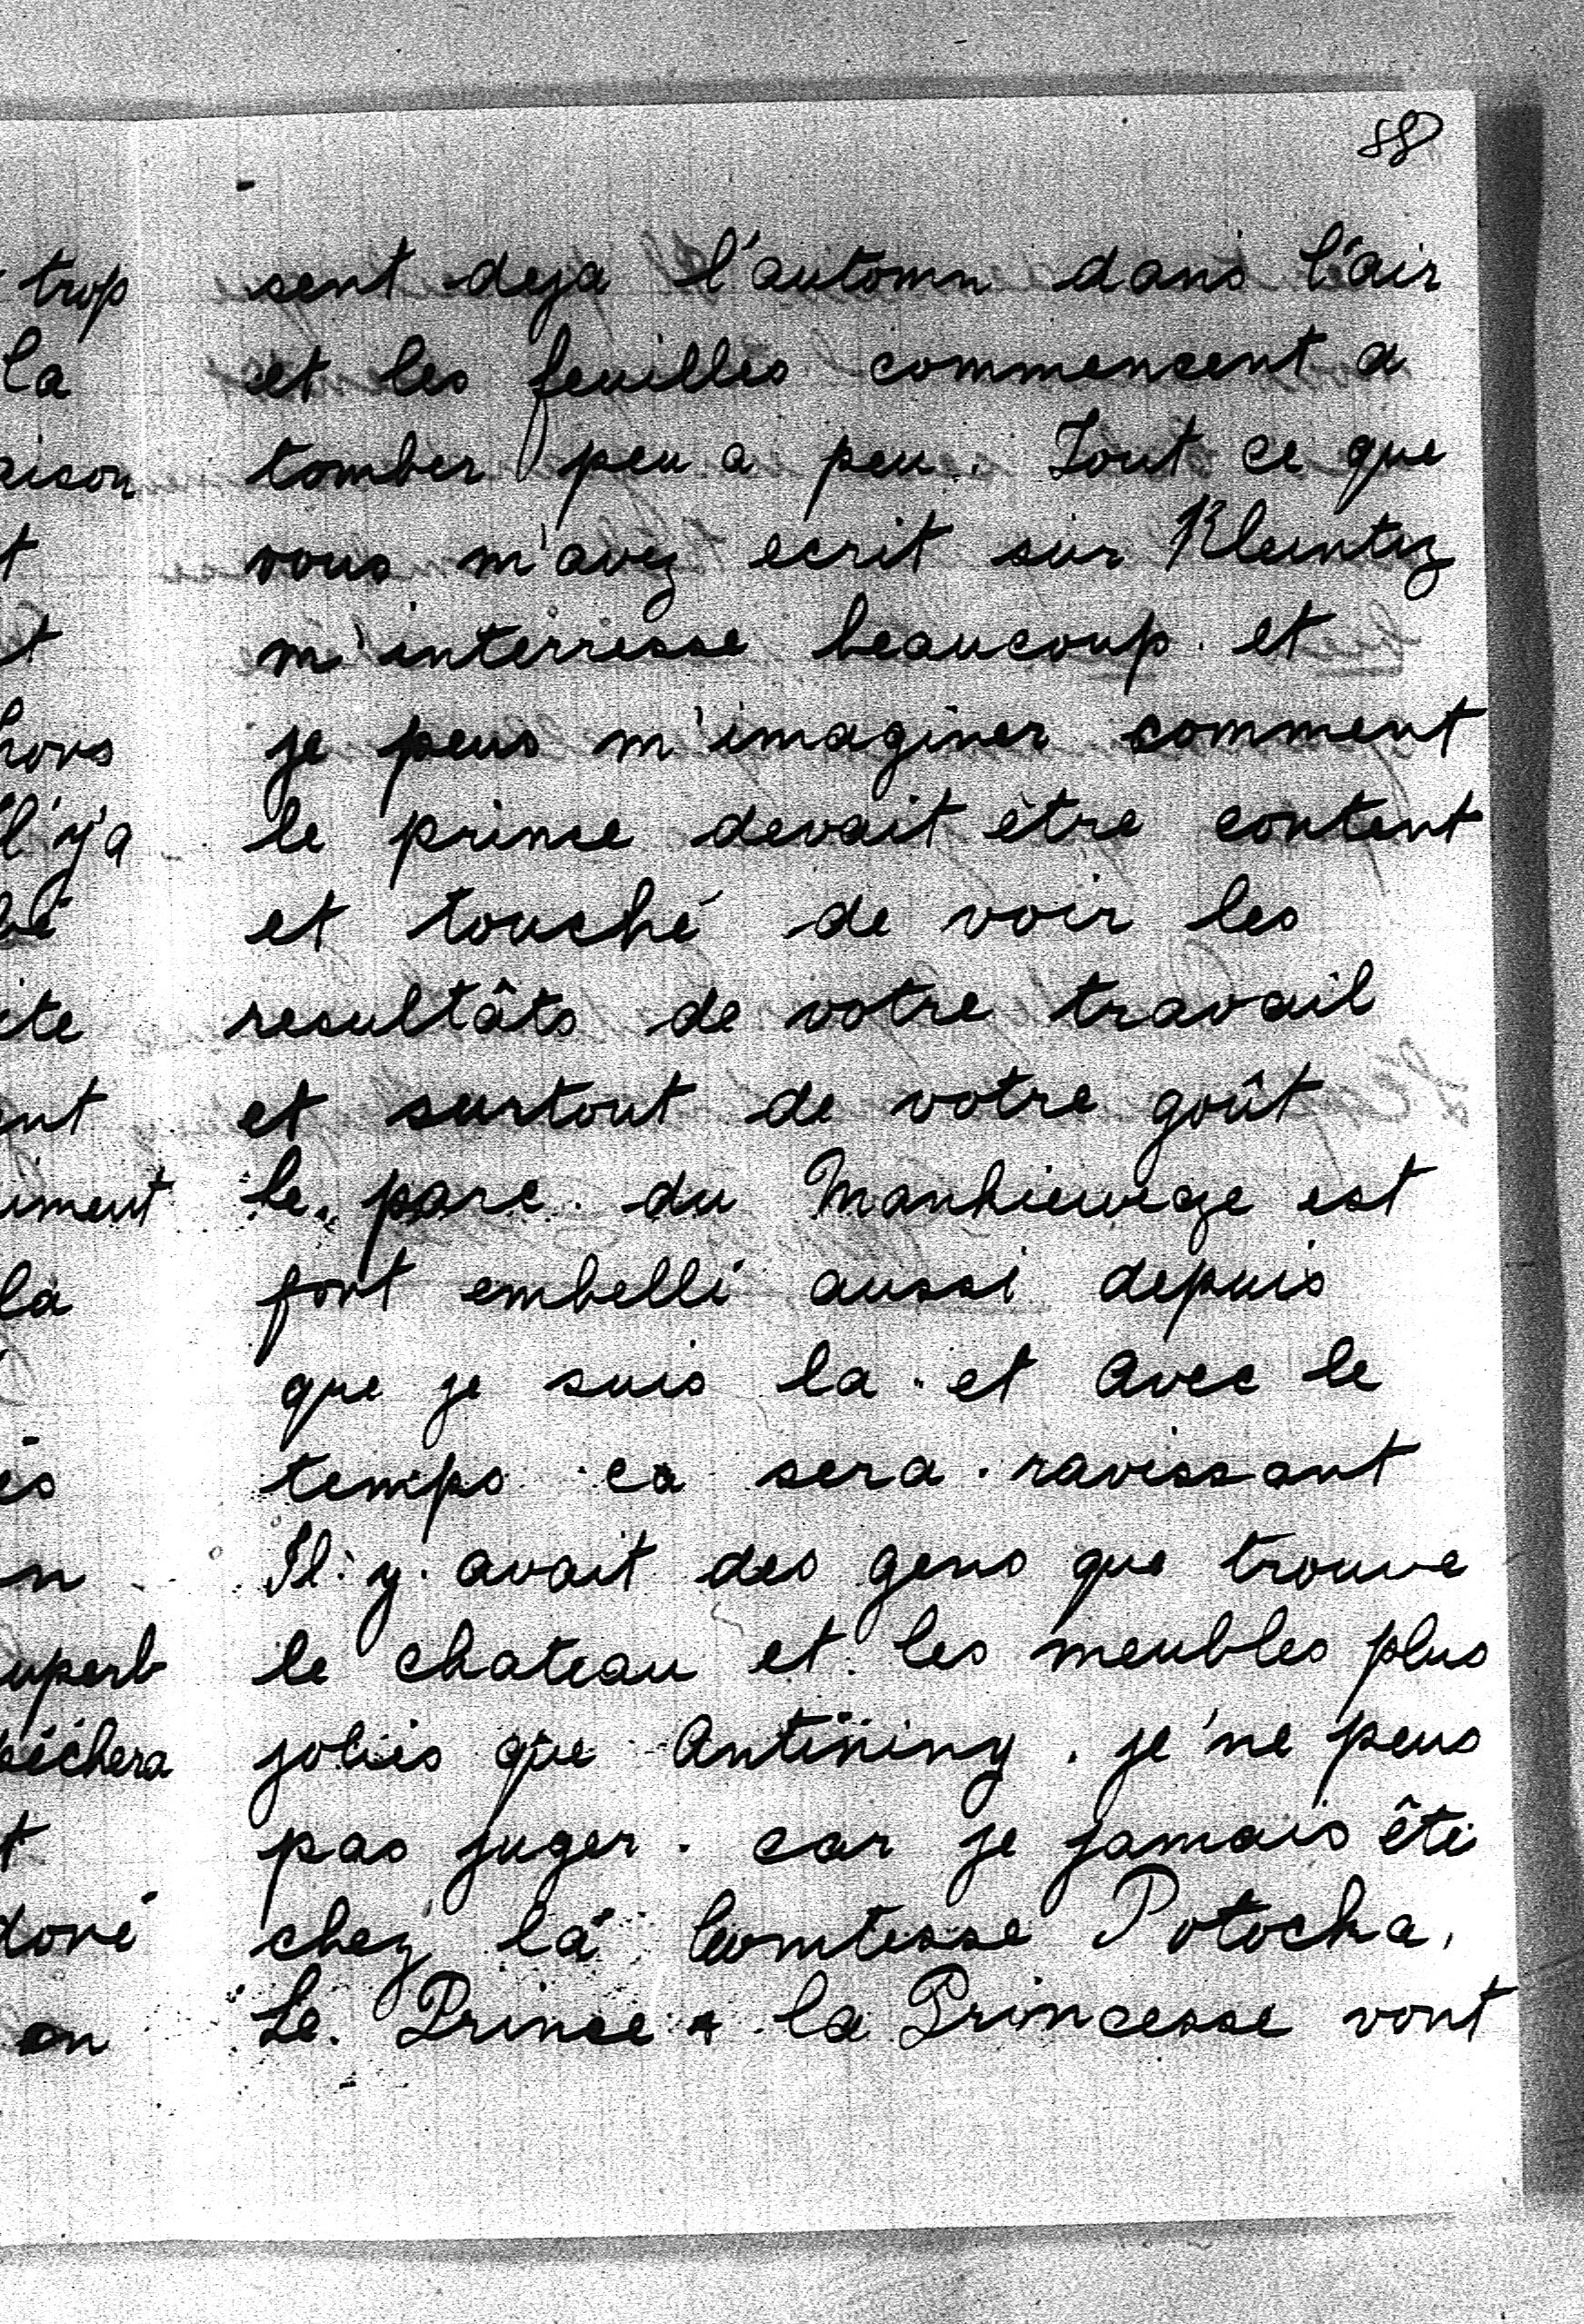 88
trop
la
aison
t
t
hors
l'y'a
bé
ite
ent
iment
la
es
n
uperb
pêchera
t
doré
on
sent deja l'automn dans l'air
et les feuilles commencent a
tomber peu a peu. Tout ce que
vous m'avez ecrit sur
m'interresse beaucoup. et
je peus m'imaginer comment
le prince devait être content
et touché de voir les
resultâts de votre travail
et surtout de votre goût
le parc du est
fort embelli aussi depuis
que je suis la. et avec le
temps ca sera ravissant
Il y avait des gens que trouve
le chateau et les meubles plus
jolies que Antininy. je ne peus
pas juger. car je jamais êté
chez la Comtesse Potocka.
Le Prince & la Princesse vont